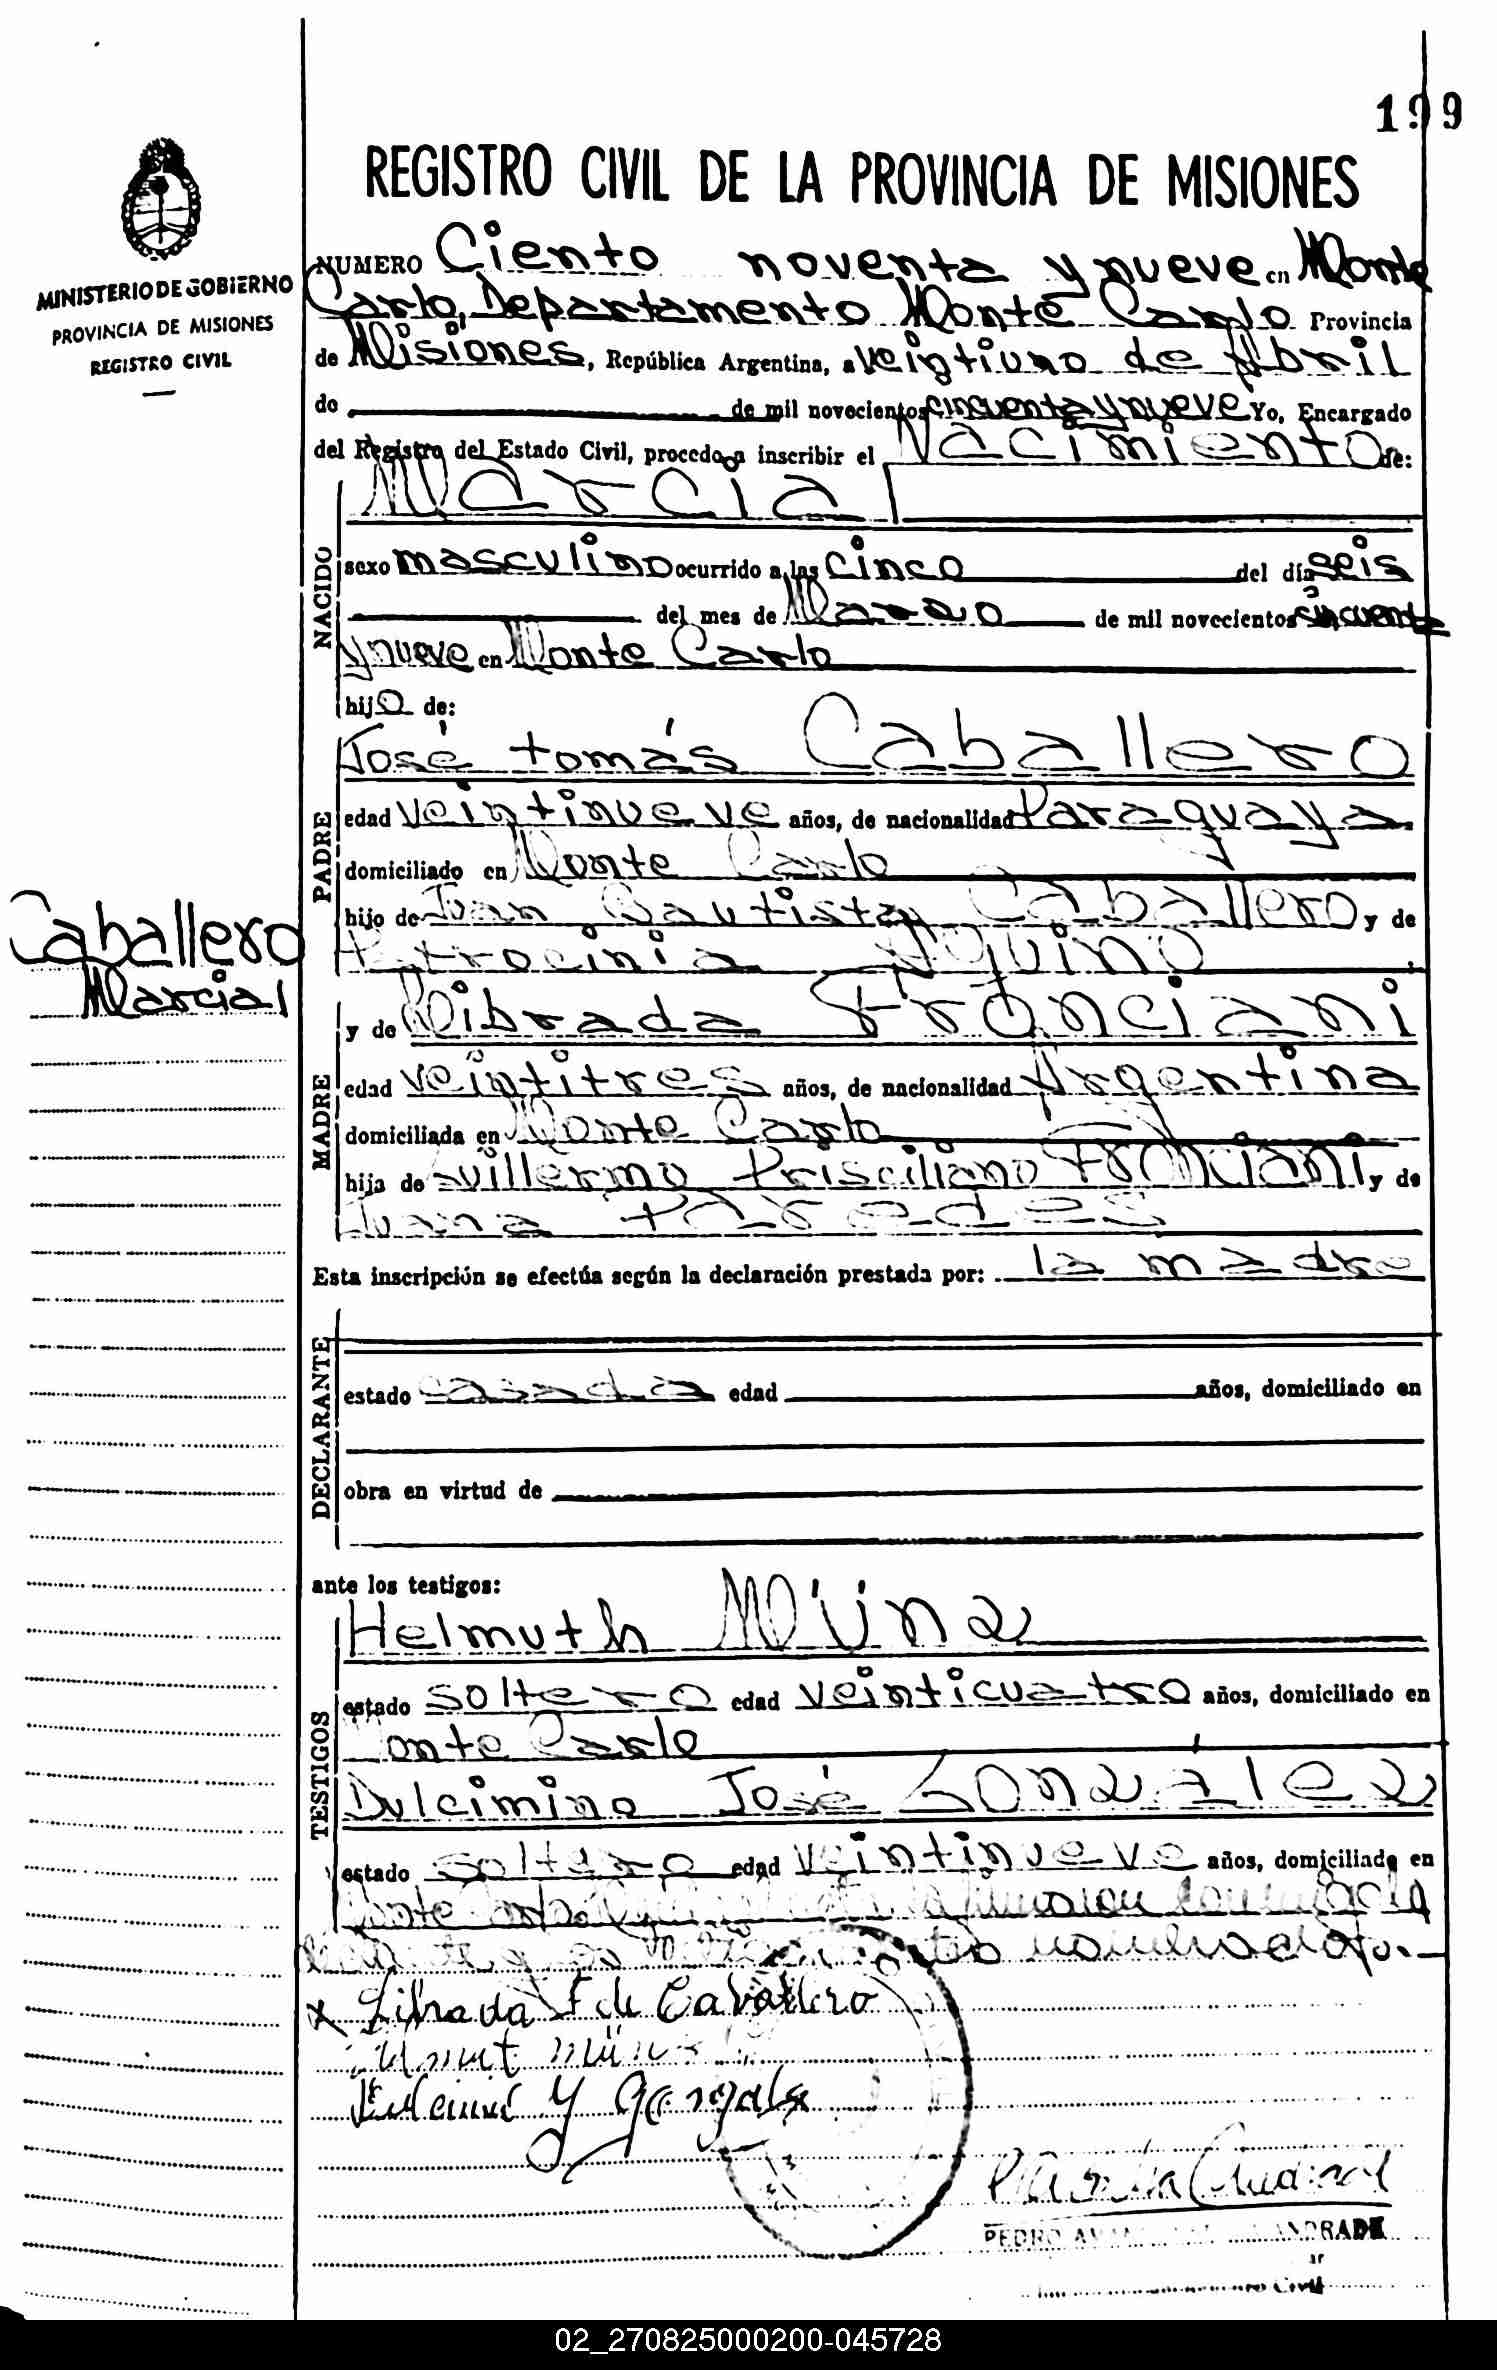 199
MINISTERIO DE GOBIERNO
PROVINCIA DE MISIONES
REGISTRO CIVIL
REGISTRO CIVIL DE LA PROVINCIA DE MISIONES
NUMERO Ciento noventa y nueve en Monte
Carlo, Departamento Monte Carlo Provincia
de Misiones, República Argentina, a veintiuno de Abril
de de mil novecientos cincuenta y nueve Yo, Encargado
del Registro del Estado Civil, procedo a inscribir el Nacimiento de:
NACIDO
Marcial
sexo masculino ocurrido a las cinco del día seis
del mes de Marzo de mil novecientos cincuenta
y nueve en Monte Carlo
hijo de:
PADRE
José tomás Caballero
edad veintinueve años, de nacionalidad Paraguaya
domiciliado en Monte Carlo
hijo de Juan Bautista Caballero y de
Petrocinia Aquino
Caballero
Marcial
MADRE
y de Librada Franciani
edad veintitres años, de nacionalidad Argentina
domiciliada en Monte Carlo
hija de Guillermo Prisciliano Franciani y de
Juana Paredes
Esta inscripción se efectúa según la declaración prestada por: la madre
DECLARANTE
estado casada edad años, domiciliado en
obra en virtud de
ante los testigos:
TESTIGOS
Helmuth Münz
estado soltero edad veinticuatro años, domiciliado en
Monte Carlo
Dulcimino José González
estado soltero edad veintinueve años, domiciliado en
Monte Carlo
x Librada F de Caballero
PEDRO ANDRADE
Civil
02_270825000200-045728